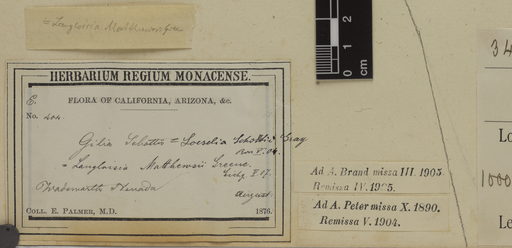 = Langloisia Matthewsii Greene
HERBARIUM REGIUM MONACENSE.
FLORA OF CALIFORNIA, ARIZONA, &c.
No. 404.
Gilia Schottii = Loeselia Schottii Gray
= Langloisia Matthewsii Greene.
Nevada
August
COLL. E. PALMER, M.D. 1876.
0 1 2
cm
Ad A. Brand missa III. 1905
Remissa IV. 1905.
Ad A. Peter missa X. 1890.
Remissa V. 1904.
34
Lo
1000
Le